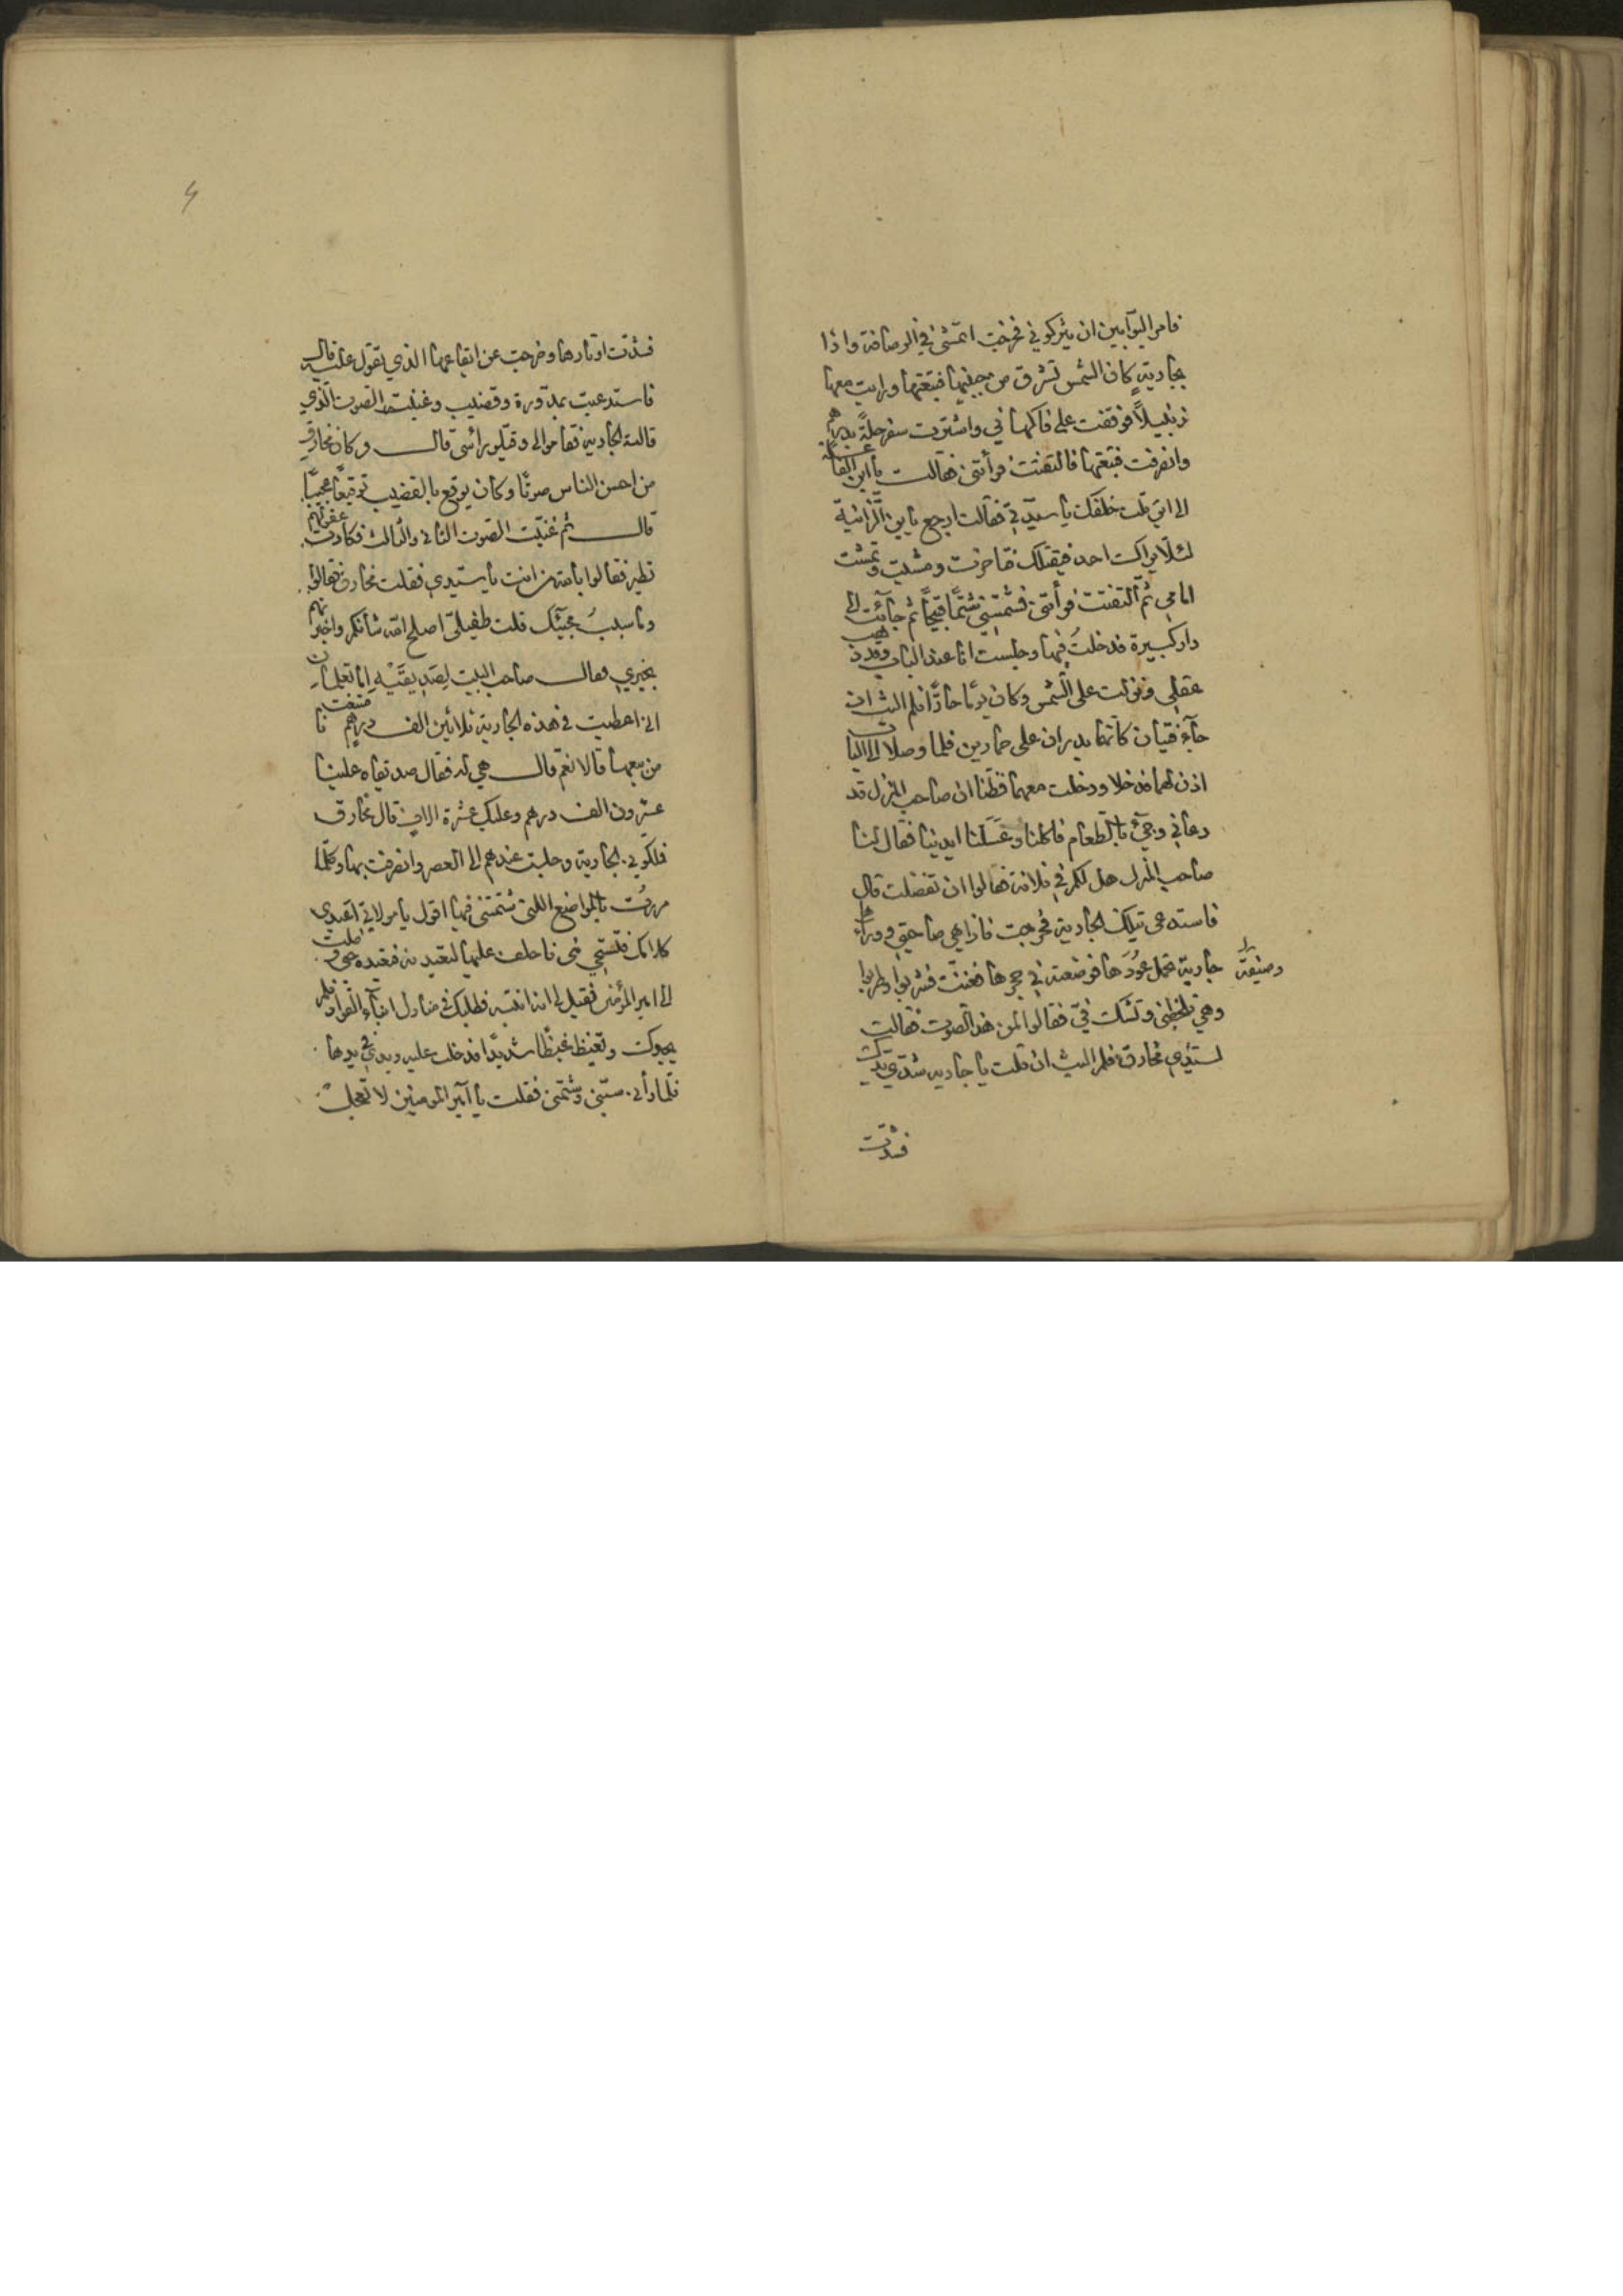 فامر البوّابين ان يتركوني فخرجت اتمشى في الرصافة واذا
بجارية كان الشمس تشرق من جبينها فتبعتها ورايت معها
زنبيلاً فوقفت على فاكهاني واشترت سفرجلة بدرهم
وانصرفت فتبعتها فالتفتت فرأتنى فقالت يا ابن الفاعلة
الى اين قلت خلفك يا سيدتي فقالت ارجع يا بن الزانية
لئلا يراك احد فيقتلك فتاخرت ومشيت وتمشت
امامي ثم التفتت فرأتنى فشتمتني شتمًا قبيحًا ثم جاءت الى
دار كبيرة فدخلت فيها وجلست انا عند الباب وقد ذهب
عقلي ونزلت على الشمس وكان يومًا حارًّا فلم البث ان
جآء فتيان كانهما بدران على حمارين فلما وصلا الى الباب
اذن لهما فدخلا ودخلت معهما فظنّا ان صاحب المنزل قد
دعاني وجيء بالطعام فاكلنا وغسلنا ايدينا فقال لنا
صاحب المنزل هل لكم في فلانة فقالوا ان تفضلت قال
فاستدعى تيلك الجارية فخرجت فاذا هي صاحبتي ووراءها
وصيفة
جارية تحمل عودها فوضعته في حجرها فغنّت فشربوا وطربوا
وهي تلحظني وتشك فيّ فقالوا لمن هذا الصوت فقالت
لسيّدي مخارق فلم البث ان قلت يا جاريه شدّي يديك
فشدّت
فشدّت اوتارها وخرجت عن ايقاعها الذي يقول عليه قال
فاستدعيت بمدّورة وقضيب وغنيت الصوت الذي
قالته الجارية فقاموا الى وقبّلو راسى قال وكان مخارق
من احسن الناس صوتًا وكان يوقع بالقضيب توقيعًا عجيبًا
قال ثم غنّيت الصوت الثانى والثالث فكادت عقولهم
تطير فقالوا بالله من انت يا سيّدي فقلت مخارق فقالوا
وما سبب مجيئك قلت طفيليّ اصلح الله شأنكم واخبرتهم
بخبري فقال صاحب البيت لصديقيه اما تعلمان
انى اعطيت في هذه الجارية ثلاثين الف درهم فامتنعت
من بيعها قالا نعم قال هي له فقال صديقاه علينا
عشرون الف درهم وعليك عشرة الاف قال مخارق
فملكوني الجارية وجلست عندهم الى العصر وانصرفت بها وكلما
مررت بالمواضع اللتى شتمتني فيها اقول يا مولاتي اعيدي
كلامك فتستحي منى فاحلف عليها لتعيدنه فتعيده حتى وصلت
الى امير المؤمنين فقيل لى انه انتبه فطلبك في منازل ابناء القواد فلم
يجدوك وتغيظ غيظًا شديدًا فدخلت عليه ويدي في يدها
فلما رأنى سبّني وشتمنى فقلت يا امير المومنين لا تعجل